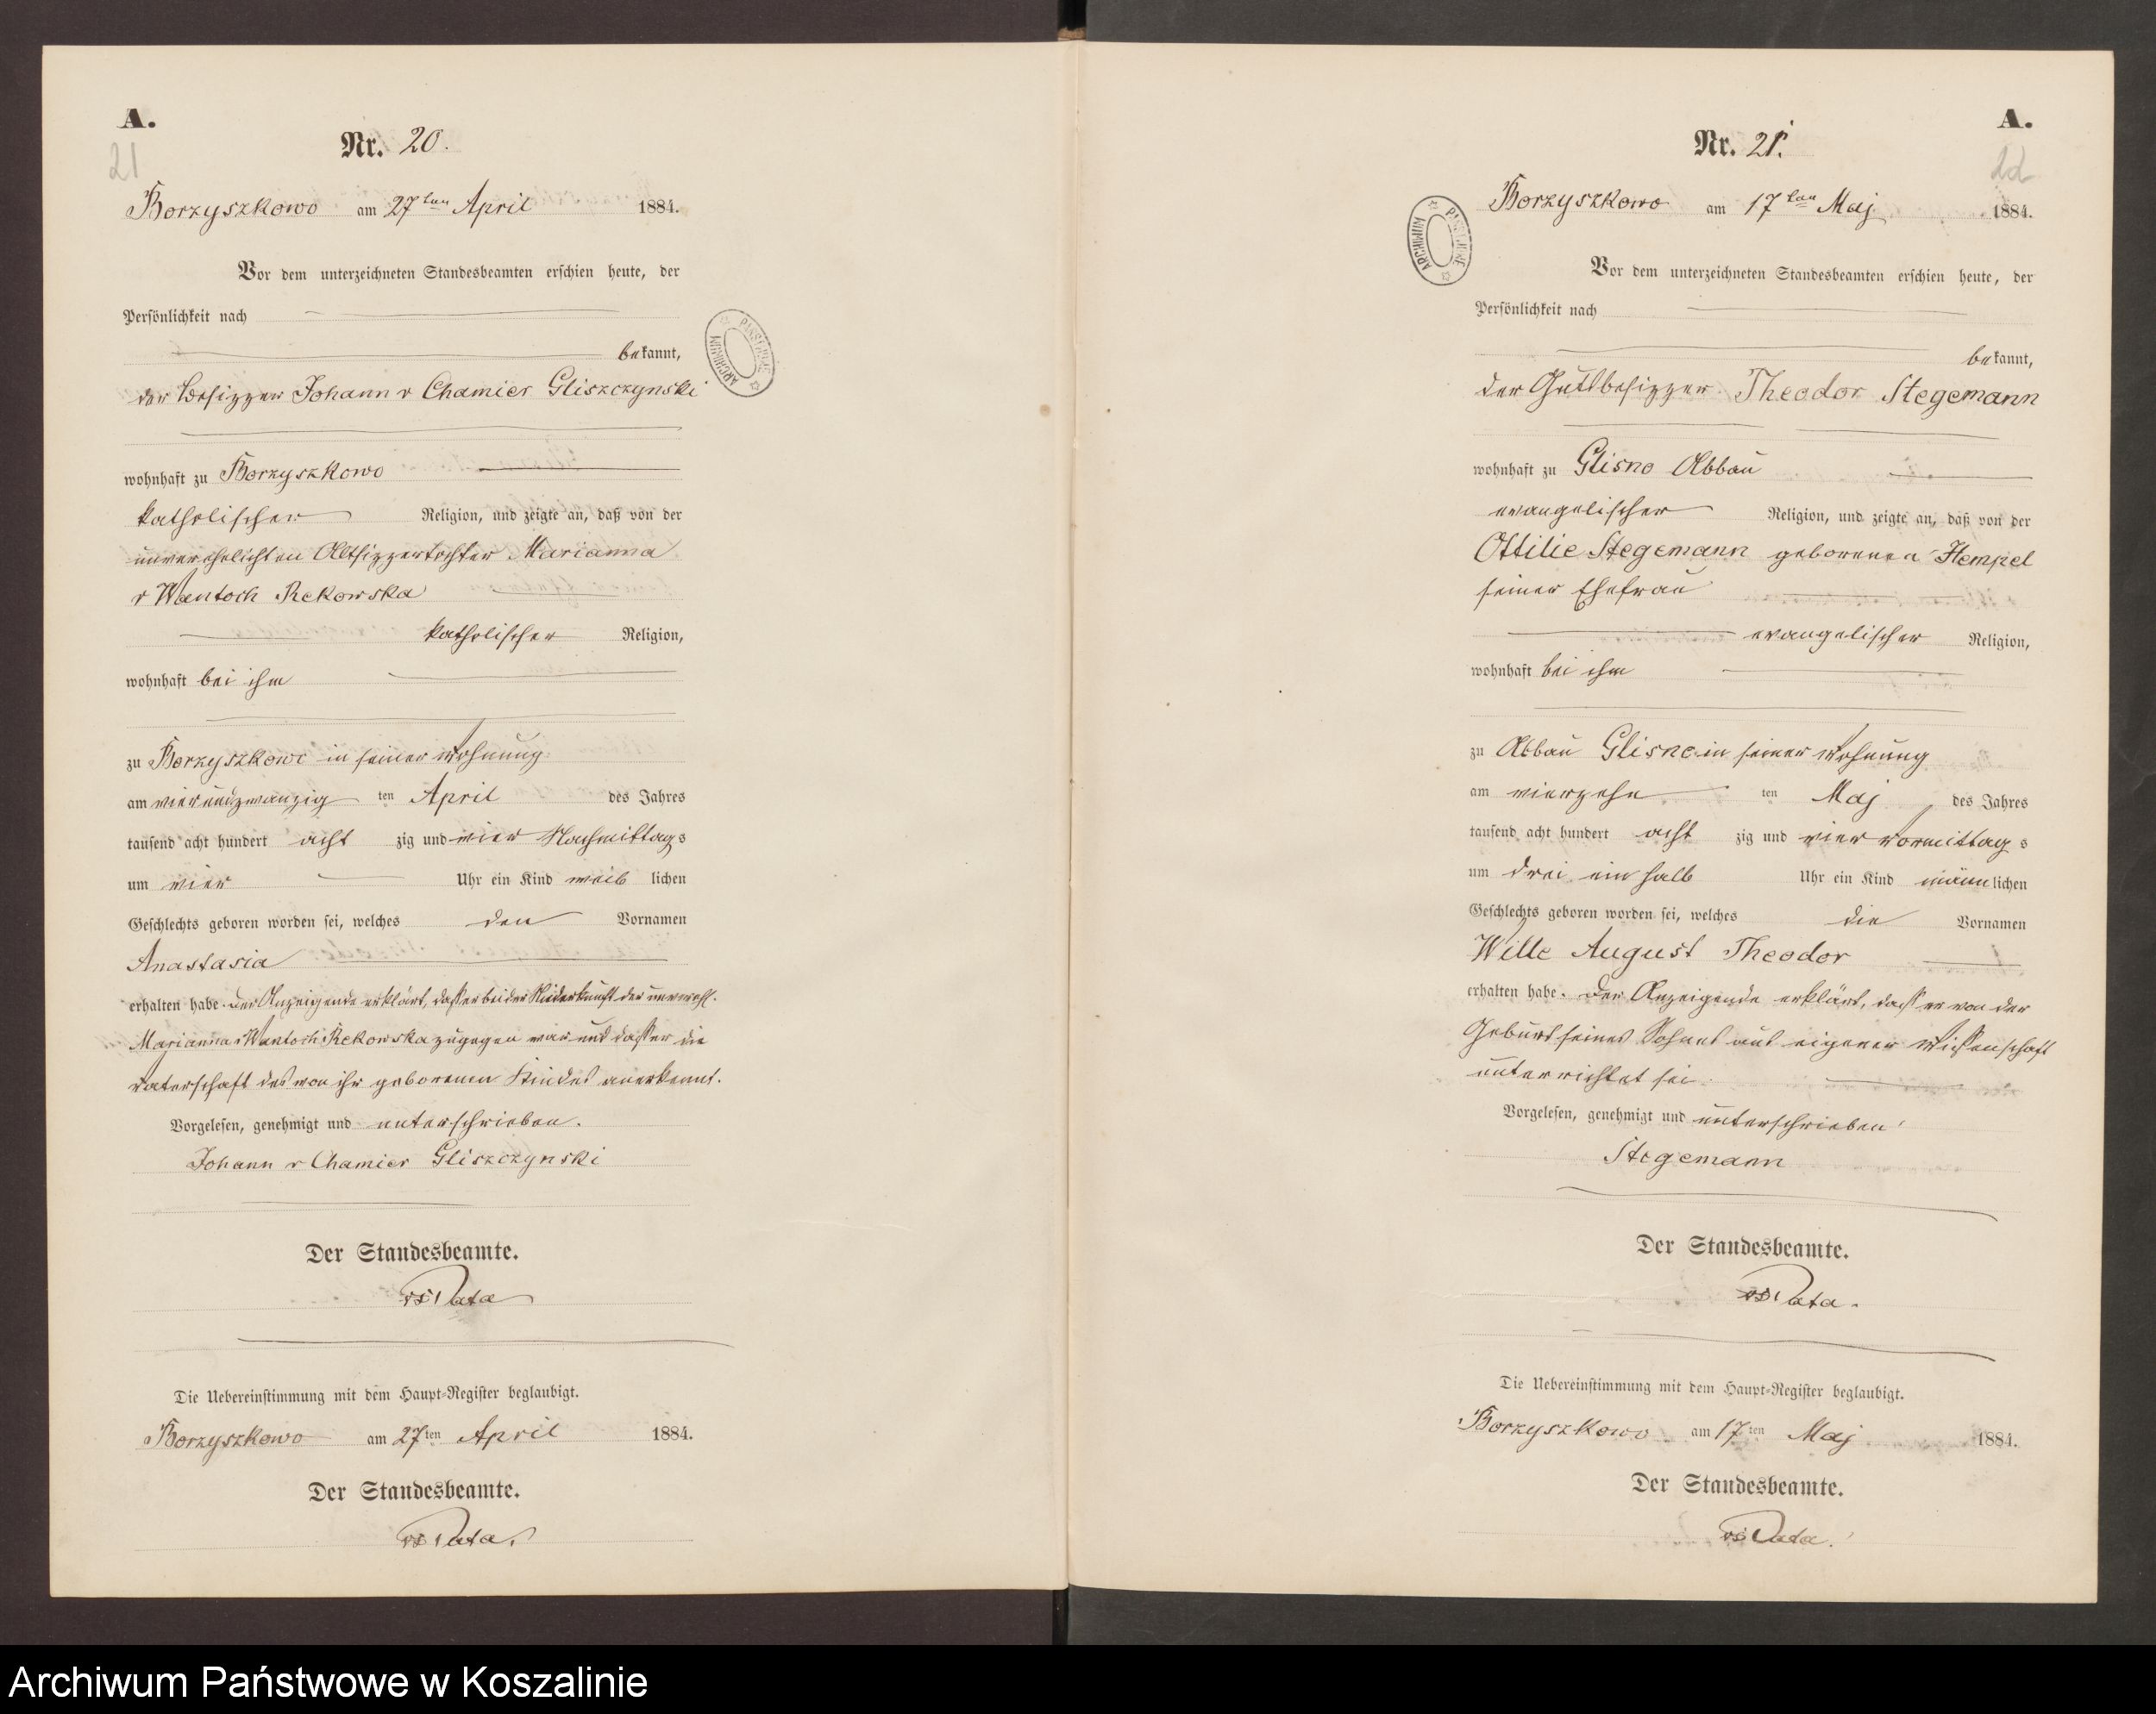 A.
21
Nr. 20.
Borzyszkowo am 27ten April 1884.
Vor dem unterzeichneten Standesbeamten erschien heute, der
Persönlichkeit nach
bekannt,
der Besizzer Johann v Chamier Gliszczynski
wohnhaft zu Borzyszkowo
katholischer Religion, und zeigte an, daß von der
unverehelichten Altsizzertochter Marianna
v Wantoch Rekowska
katholischer Religion,
wohnhaft bei ihm
zu Borzyszkowo in seiner Wohnung
am vierundzwanzig ten April des Jahres
tausend acht hundert acht zig und vier Nachmittags
um vier Uhr ein Kind weib lichen
Geschlechts geboren worden sei, welches den Vornamen
Anastasia
erhalten habe. Der Anzeigende erklärt, dass er bei der Niederkunft der unverehl.
Marianna v Wantoch Rekowska zugegen war und dass er die
Vaterschaft des von ihr geborenen Kindes anerkennt.
Vorgelesen, genehmigt und unterschrieben.
Johann v Chamier Gliszczynski
Der Standesbeamte.
Die Uebereinstimmung mit dem Haupt-Register beglaubigt.
Borzyszkowo am 27ten April 1884.
Der Standesbeamte.
ARCHIWUM PAŃSTWOWE
A.
22
Nr. 21.
Borzyszkowo am 17ten Maj 1884.
Vor dem unterzeichneten Standesbeamten erschien heute, der
Persönlichkeit nach
bekannt,
der Guttbesizzer Theodor Stegemann
wohnhaft zu Glisno Abbau
evangelischer Religion, und zeigte an, daß von der
Ottilie Stegemann geborenen Hempel
seiner Ehefrau
evangelischer Religion,
wohnhaft bei ihm
zu Abbau Glisno in seiner Wohnung
am vierzehn ten Maj des Jahres
tausend acht hundert acht zig und vier Vormittag s
um drei ein halb Uhr ein Kind männlichen
Geschlechts geboren worden sei, welches die Vornamen
Wille August Theodor
erhalten habe. Der Anzeigende erklärt, dass er von der
Geburt seines Sohnes aus eigener Wissenschaft
unterrichtet sei.
Vorgelesen, genehmigt und unterschrieben
Stegemann
Der Standesbeamte.
Die Uebereinstimmung mit dem Haupt-Register beglaubigt.
Borzyszkowo am 17ten Maj 1884.
Der Standesbeamte.
ARCHIWUM PAŃSTWOWE
Archiwum Państwowe w Koszalinie